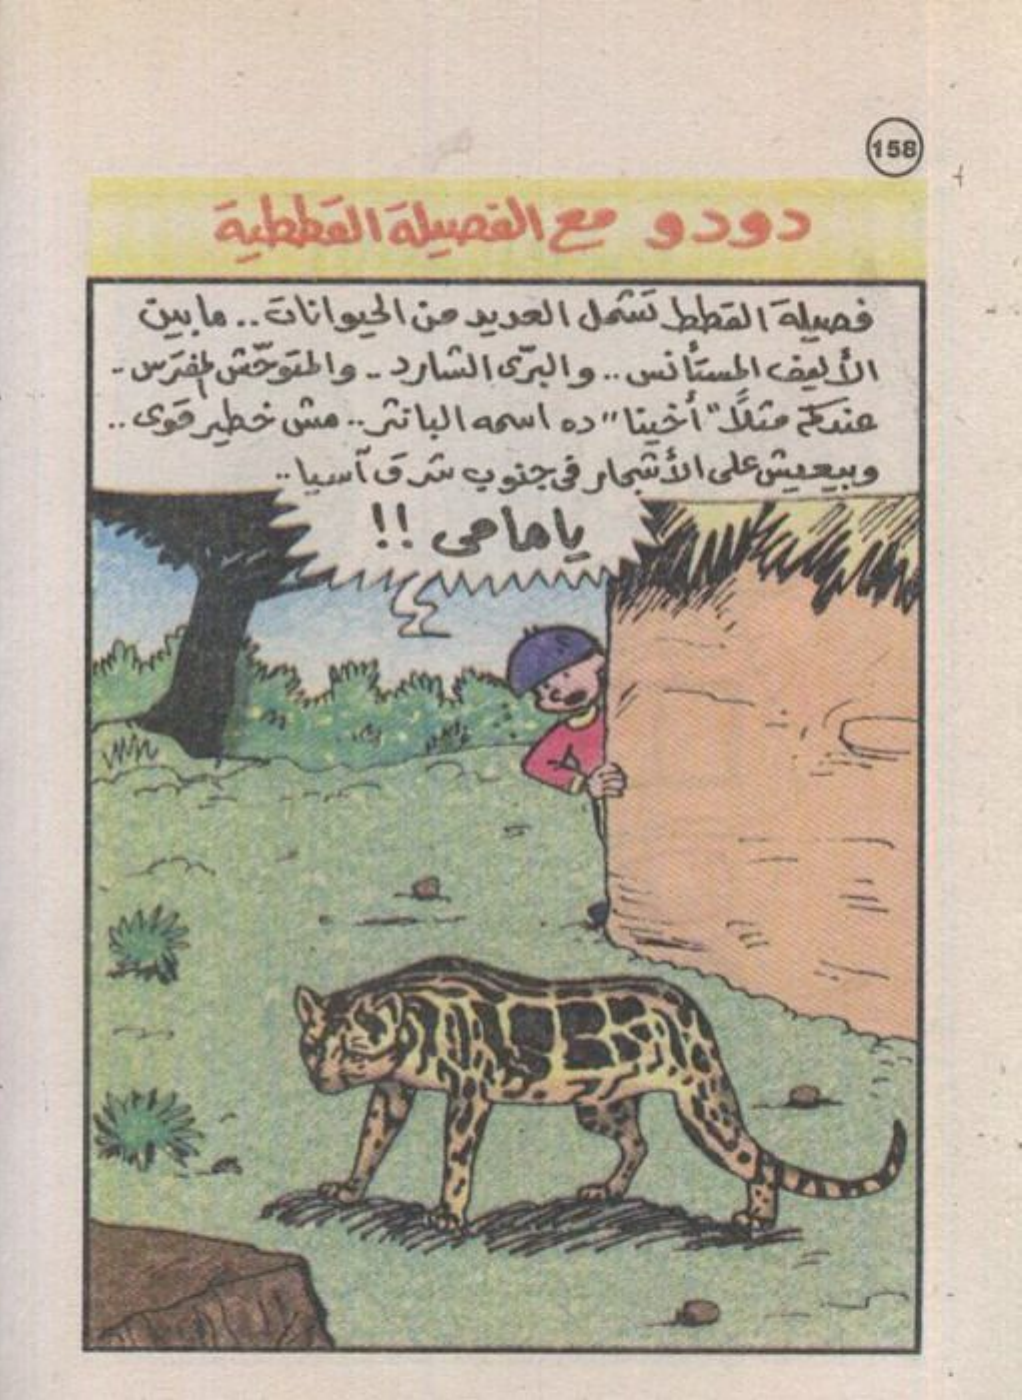 158
دودو مع الفصيلة القططية
فصيلة القطط تشمل العديد من الحيوانات .. ما بين
الأليف المستأنس .. والبرّى الشارد .. والمتوحّش المفترس ..
عندكم مثلاً "أخينا" ده اسمه البانثر .. مش خطير قوى ..
وبيعيش على الأشجار فى جنوب شرق آسيا ..
ياماحى !!